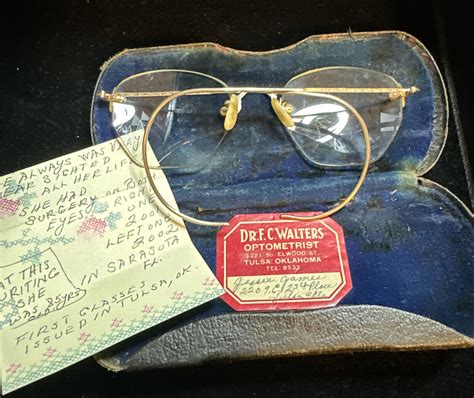 E ALWAYS WAS VARY
AR SIGHTED
ALL HER LIFE
SHE HAD
SURGERY ON B
EYES RIGHT
ONE
2001
LEFT ONE
2002
IN SARASOTA
FL.
AT THIS
WRITING
SHE
WAS 85YRS
FIRST GLASSES
ISSUED IN TULSA, OK.
DR. F. C. WALTERS
OPTOMETRIST
ELWOOD ST.
TULSA OKLAHOMA
TEL 8532
Jessie James
Place